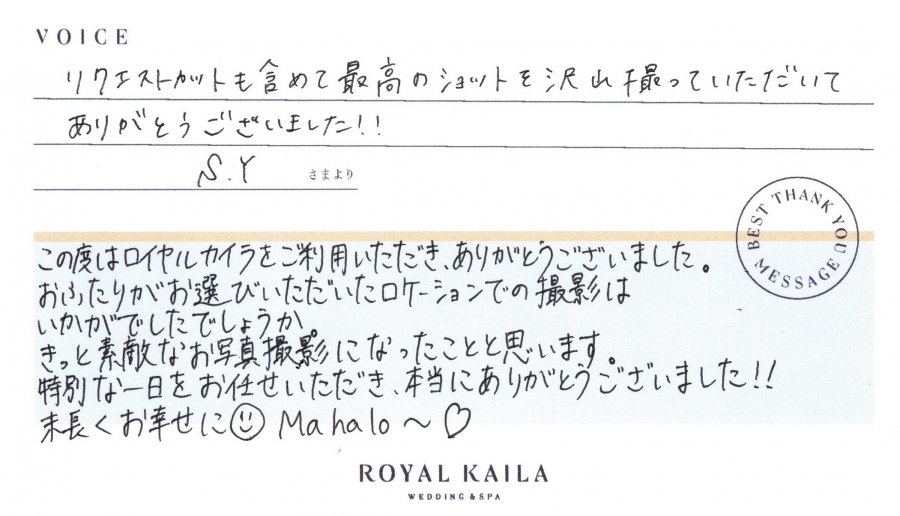 VOICE
リクエストカットも含めて最高のショットを沢山撮っていただいて
ありがとうございました!!
S.Y さまより
BEST THANK YOU MESSAGE
この度はロイヤルカイラをご利用いただき、ありがとうございました。
おふたりがお選びいただいたロケーションでの撮影は
いかがでしたでしょうか。
きっと素敵なお写真撮影になったことと思います。
特別な一日をお任せいただき、本当にありがとうございました!!
末長くお幸せに☺ Mahalo～♡
ROYAL KAILA
WEDDING & SPA